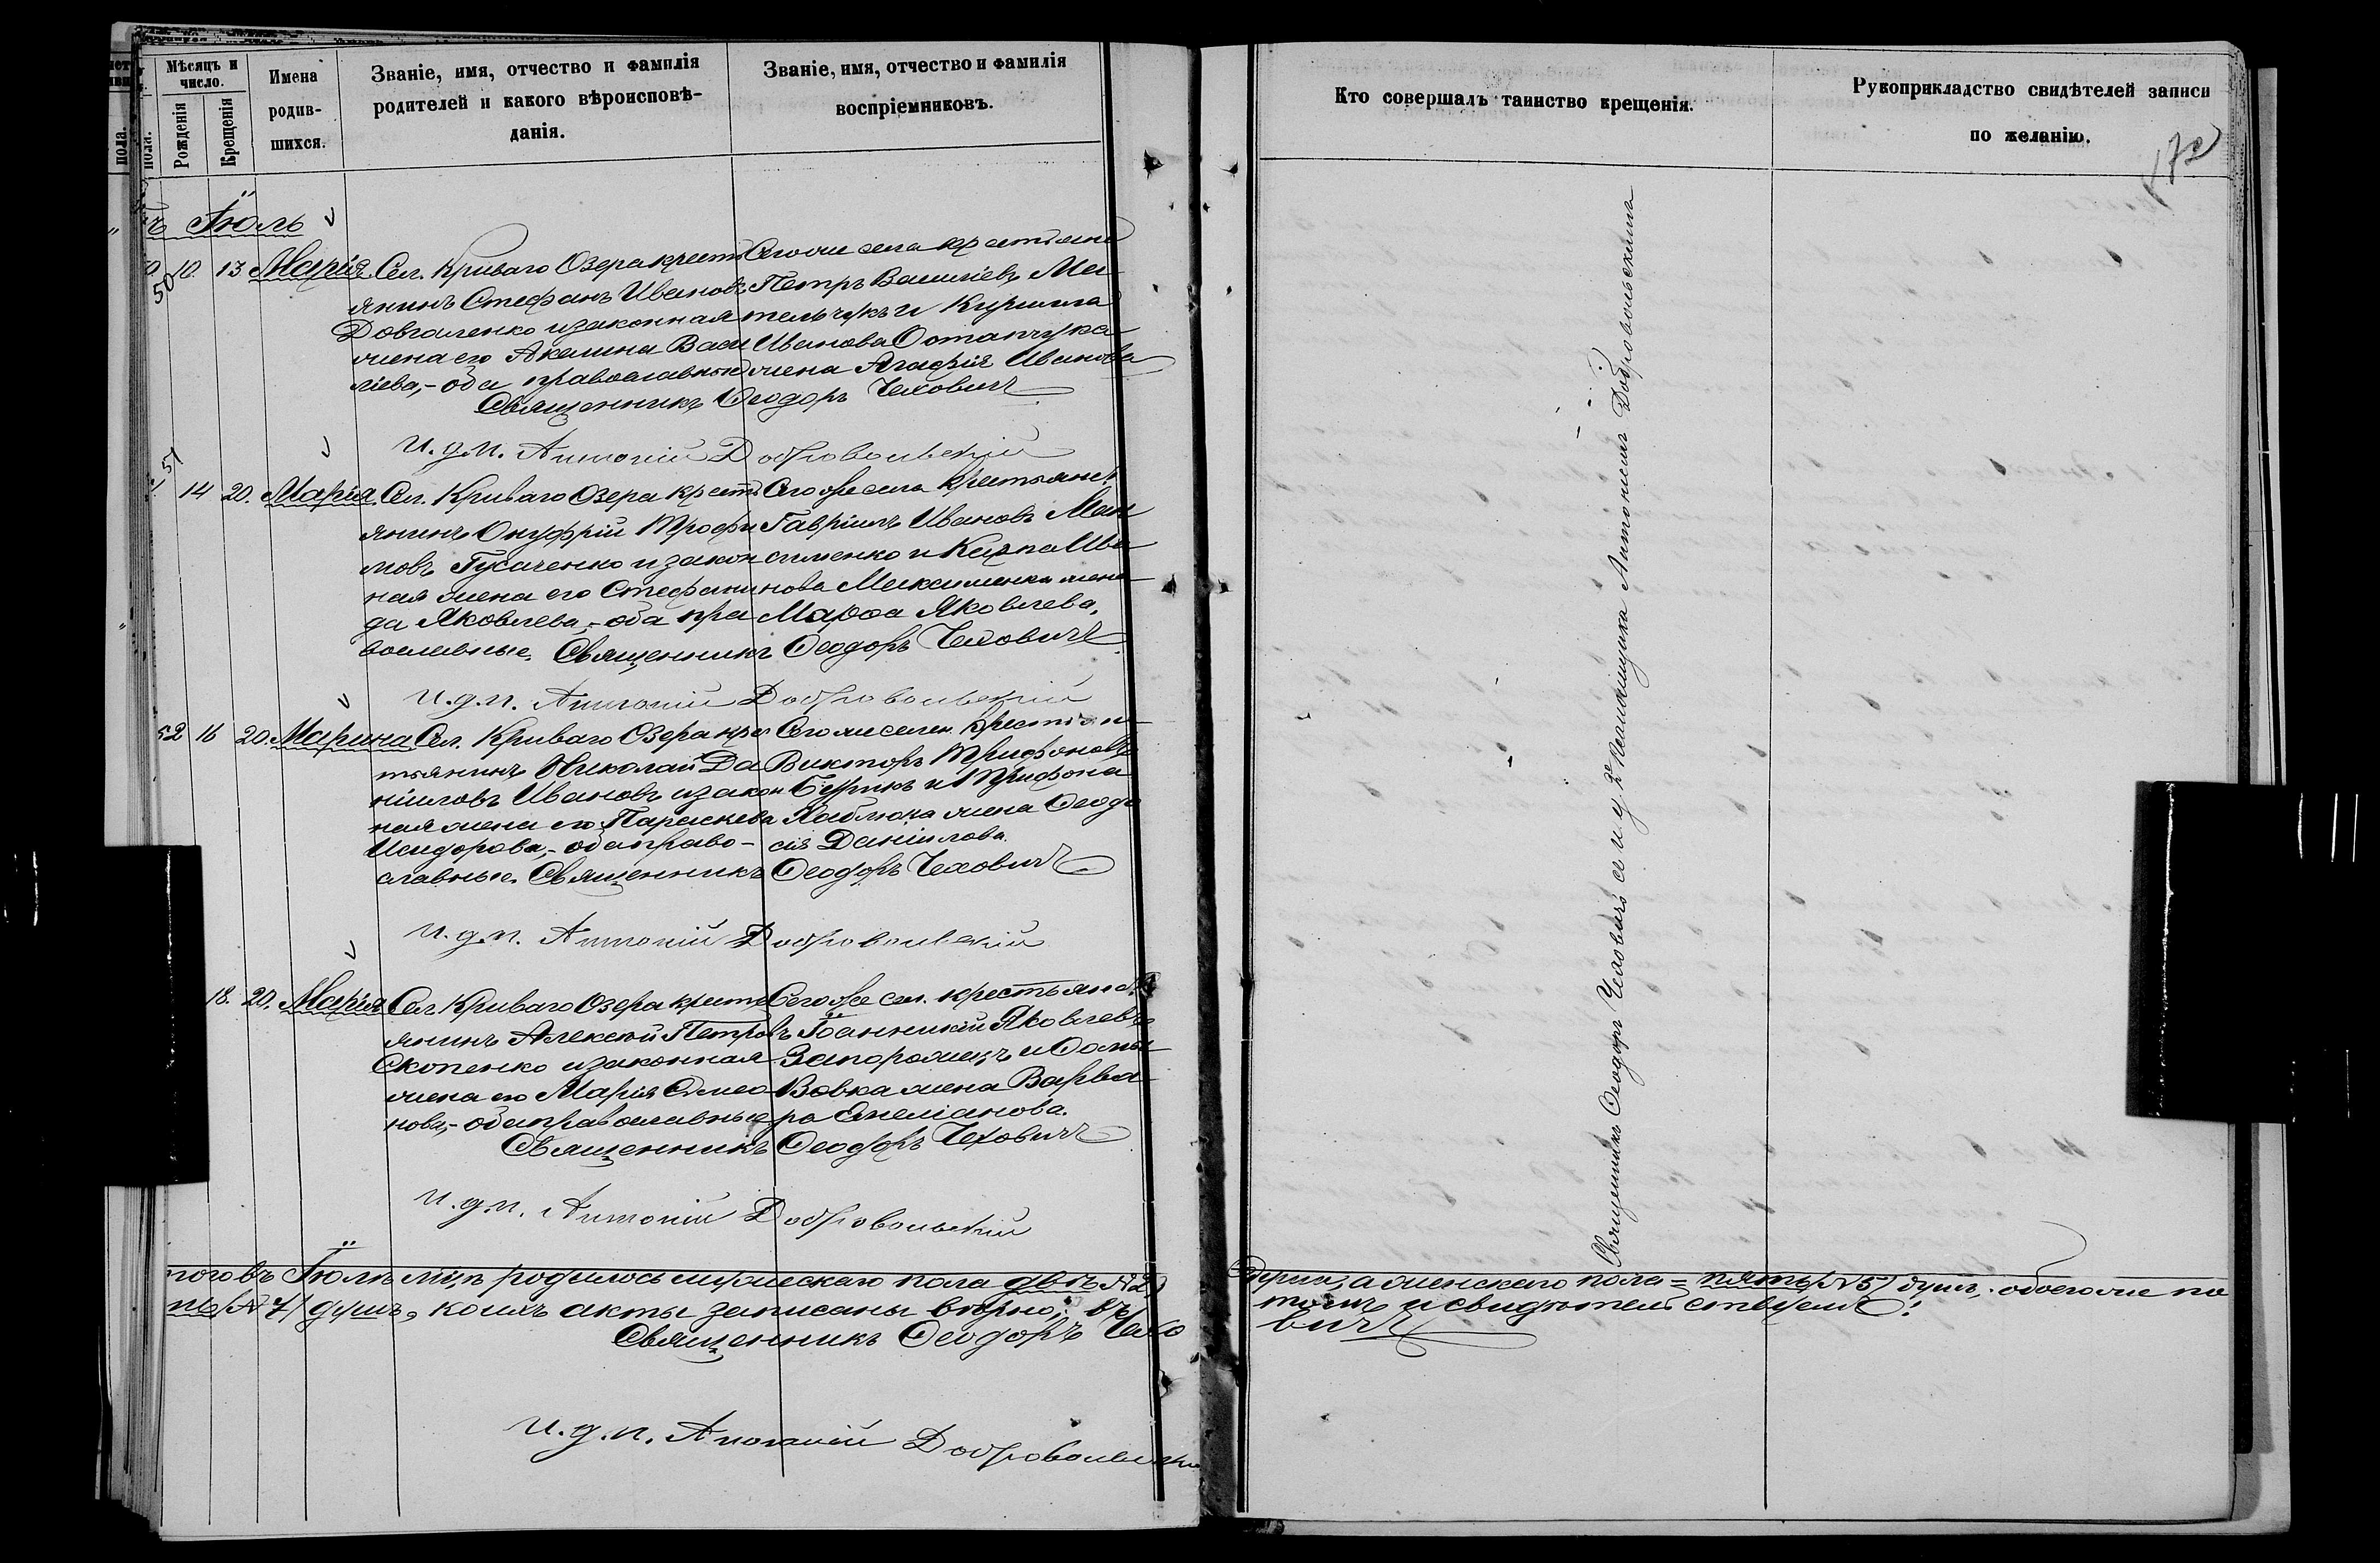 Мѣсяцъ и число.
Рожденія
Крещенія
Имена родив-шихся.
Званіе, имя, отчество и фамилія
родителей и какого вѣроисповѣ-
данія.
Званіе, имя, отчество и фамилія
воспріемниковъ.
пола.
Кто совершалъ таинство крещенія.
Рукоприкладство свидѣтелей записи
по желанію.
172
Іюль
50 10. 13 Марія
Сел. Криваго Озера крестъ
янинъ Стефанъ Ивановъ
Довгаленко и законная
жена его Акилина Васи
ліева,- оба православные
Того же села крестьяне
Петръ Василіевъ Ме
льчукъ и Кирилла
Иванова Остапчука
жена Агафія Иванова
Священникъ Ѳеодоръ Чехович
И.д.п. Антоній Добровольскій
51 14 20. Марія
Сел. Криваго Озера крестъ
янинъ Онуфрій Трофи
мовъ Гусаченко и закон
ная жена его Стефани
да Яковлева,- оба пра
вославные.
Того же села крестьяне:
Гавріилъ Ивановъ Мак
сименко и Карпа Ива
нова Максименка жена
Марѳа Яковлева.
Священникъ Ѳеодоръ Чехович
И.д.п. Антоній Добровольскій
52 16 20. Марина
Сел. Криваго Озера крес
тьянинъ Николай Да
ніиловъ Ивановъ и закон
ная жена его Параскева
Исидорова,- оба право-
славные.
Того же селен. крестьян
Викторъ Трифоновъ
и Трифона
жена Ѳеодо
сія Даніилова.
Священникъ Ѳеодоръ Чехович
И.д.п. Антоній Добровольскій
18. 20. Марія
Сел. Криваго Озера крестъ
янинъ Алексѣй Петровъ
Скопенко и законная
жена его Марія Симео
нова,- оба православные
Того же сел. крестьяне:
Іоанникій Яковлевъ
Запорожецъ и Ѳомы
Вовка жена Варва
ра Емеліанова.
Священникъ Ѳеодоръ Чехович
И.д.п. Антоній Добровольскій
того въ Іюлѣ мцѣ родилось мужескаго пола двѣ /№2/
души, а женскаго пола = пять /№5/ душъ, обоего же по
/№7/ душъ, коихъ акты записаны вѣрно, въ
томъ и свидѣтельствуемъ:
Священникъ Ѳеодоръ Чехо
вичъ
И.д.п. Антоній Добровольскій
Священникъ Ѳеодоръ Чеховичъ съ и. д. псаломщика Антоніемъ Добровольскимъ